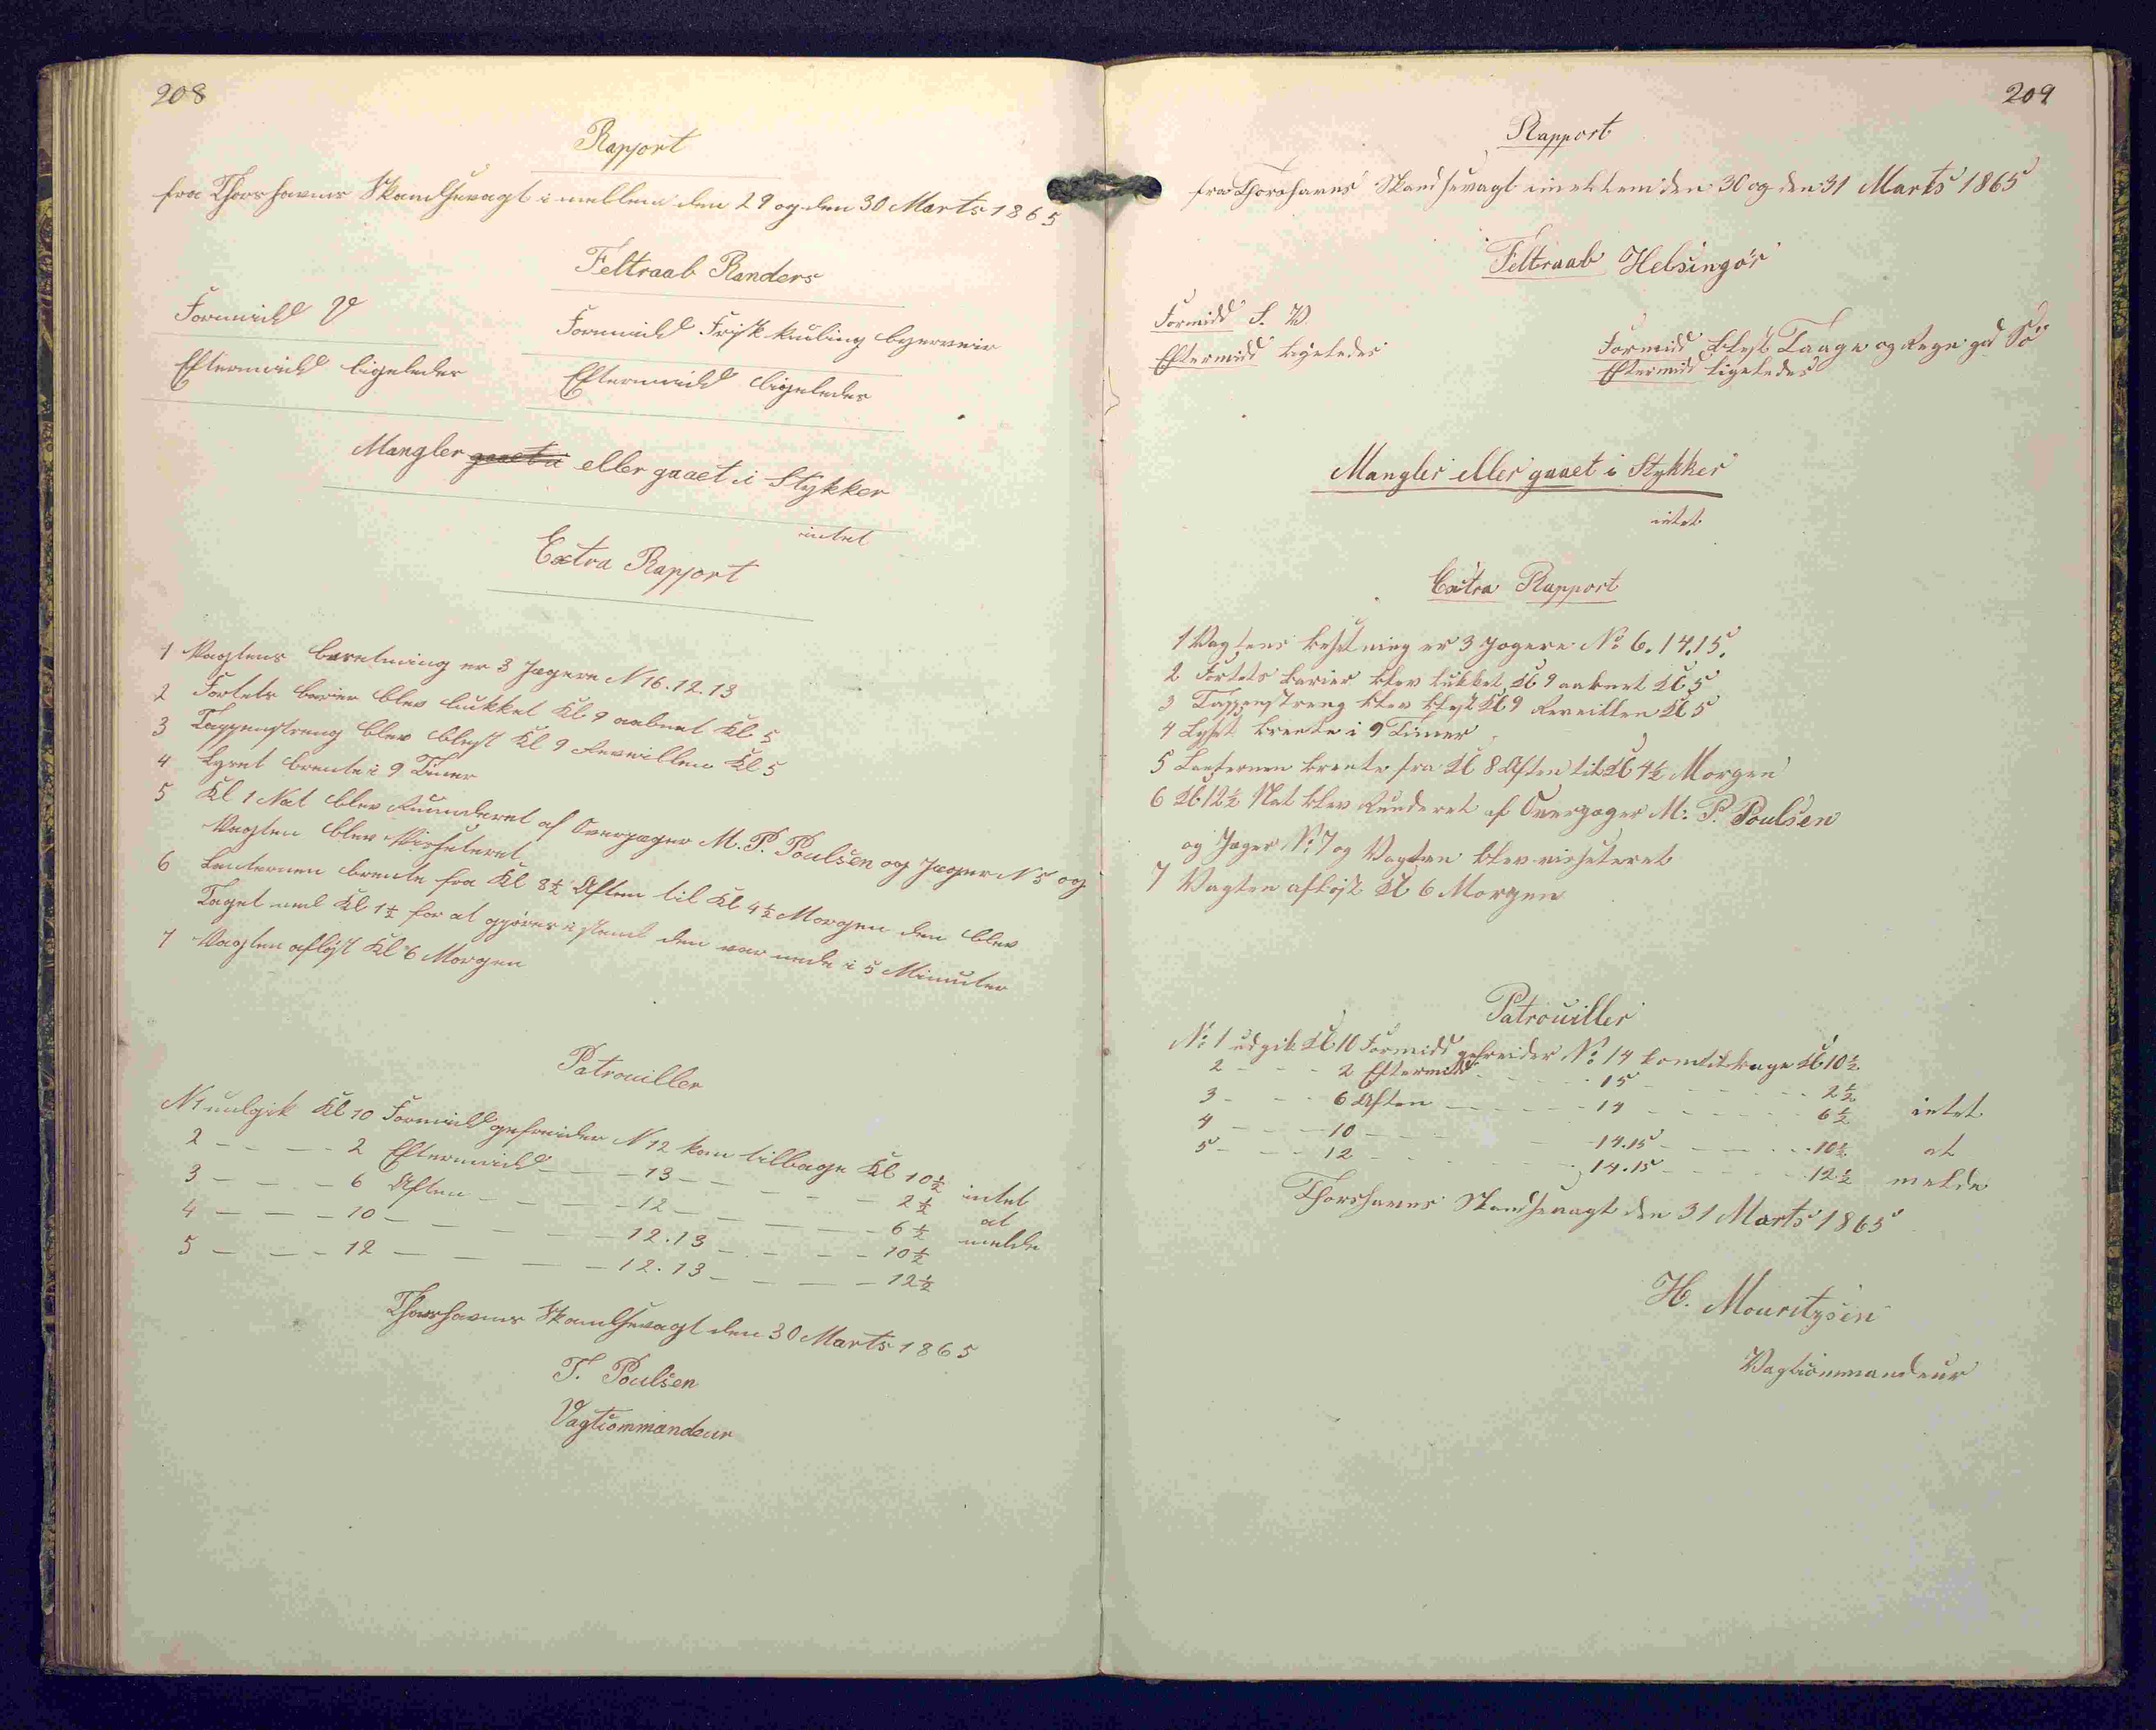 208
Rapport
fra Thorshavns Skandsevagt imellem den 29 og den 30 Marts 1865
Feltraab Randers
Formidd V
Formidd Frisk kuling byerveir
Eftermidd ligeledes
Eftermidd ligeledes
Mangler gaaet i eller gaaet i Stykker
intet
Extra Rapport
1 Vagtens besetning er 3 Jægere N 16. 12. 13
2 Fortets barier blev lukket Kl 9 aabnet Kl 5
3 Tappenstreng blev blest Kl 9 Reveillen Kl 5
4 Lyset brente i 9 Timer
5 Kl 1 Nat blev Runderet af Overjæger M. P. Poulsen og Jæger N 5 og
Vagten blev Visiteret
6 Lanternen brente fra Kl 8½ Aften til Kl 4½ Morgen den blev
Taget ned Kl 1½ for at gjøres istand den var nede i 5 Minuter
7 Vagten afløst Kl 6 Morgen
Patrouiller
N 1 udgik Kl 10 Formidd gefreider N 12 kom tilbage Kl 10½
2 - - - 2 Eftermidd - - - 13 - - - - 2½ intet
3 - - - 6 Aften - - - - 12 - - - - 6½ at
4 - - - 10 - - - - - 12.13 - - - - 10½ melde
5 - - - 12 - - - - - 12.13 - - - - 12½
Thorshavns Skandsevagt den 30 Marts 1865
T. Poulsen
Vagtcommandeur
209
Rapport
fra Thorshavns Skandsevagt imellem den 30 og den 31 Marts 1865
Feltraab Helsingör
Formidd S. V.
Formidd blest Taage og Regn gd Sö
Eftermidd ligeledes
Eftermidd ligeledes
Mangler eller gaaet i Stykker
intet
Extra Rapport
1 Vagtens besetning er 3 Jægere No 6. 14. 15.
2 Fortets barier blev lukket Kl 9 aabent Kl 5
3 Tappenstreng blev blest Kl 9 Reveillen Kl 5
4 Lyset brente i 9 Timer
5 Lanternen brente fra Kl 8 Aften til Kl 4½ Morgen
6 Kl 12½ Nat blev Runderet af Overjæger M: P. Poulsen
og Jæger No 7 og Vagten blev visiteret
7 Vagten afløst Kl 6 Morgen
Patrouiller
No 1 udgik Kl 10 Formidd gefreider No 14 kom tilbage Kl 10½
2 - - - 2 Eftermidd - - - 15 - - - - 2½
3 - - - 6 Aften - - - - 14 - - - - 6½ intet
4 - - - 10 - - - - 14.15 - - - - 10½ at
5 - - - 12 - - - - 14.15 - - - - 12½ melde
Thorshavns Skandsevagt den 31 Marts 1865
H. Mouritzsen
Vagtcommandeur